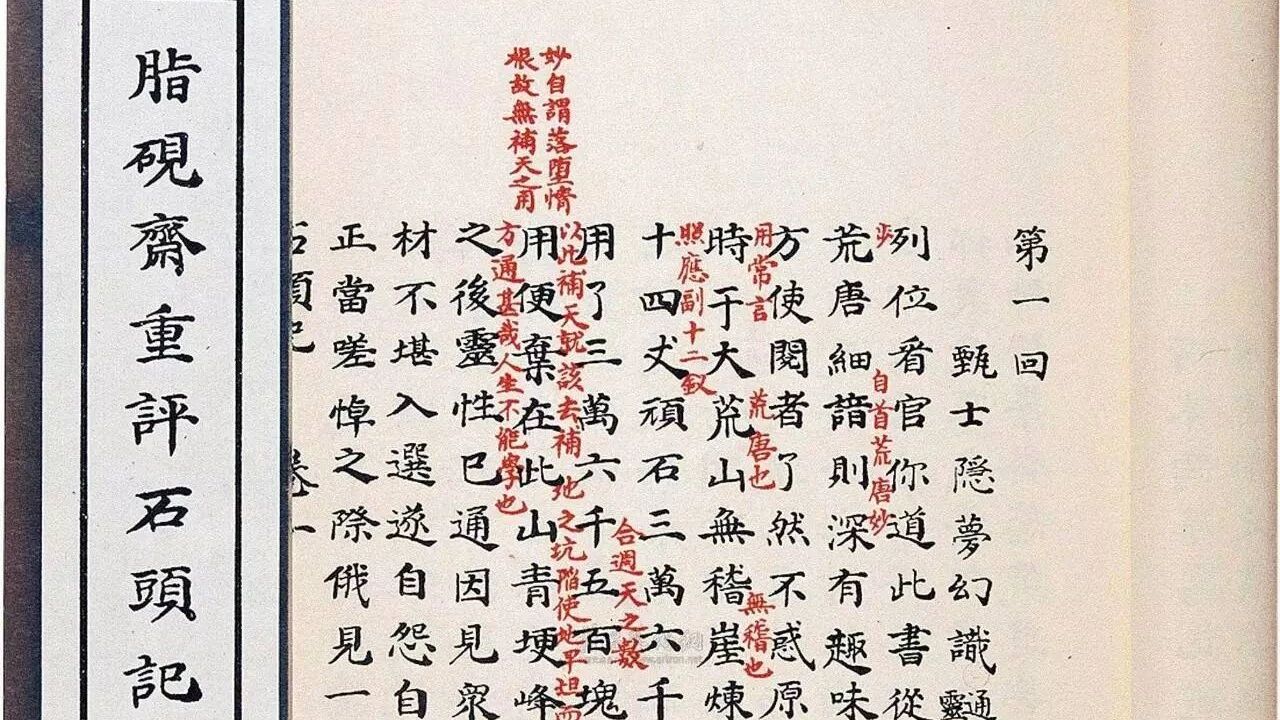 第一回
甄士隱夢幻識通靈
列位看官你道此書從
自首荒唐妙
荒唐細諳則深有趣味
方使閱者了然不惑原
用常言
荒唐也
無稽也
時于大荒山無稽崖煉
照應副十二釵
十四丈頑石三萬六千
合週天之數
用了三萬六千五百塊
妙自謂落堕情
根故無補天之用
以此補天就該去補地之坑陷使地平坦而
用便棄在此山青埂峰
方通甚哉人生不能學也
之後靈性已通因見衆
材不堪入選遂自怨自
正當嗟悼之際俄見一
石頭記 卷一
脂硯齋重評石頭記